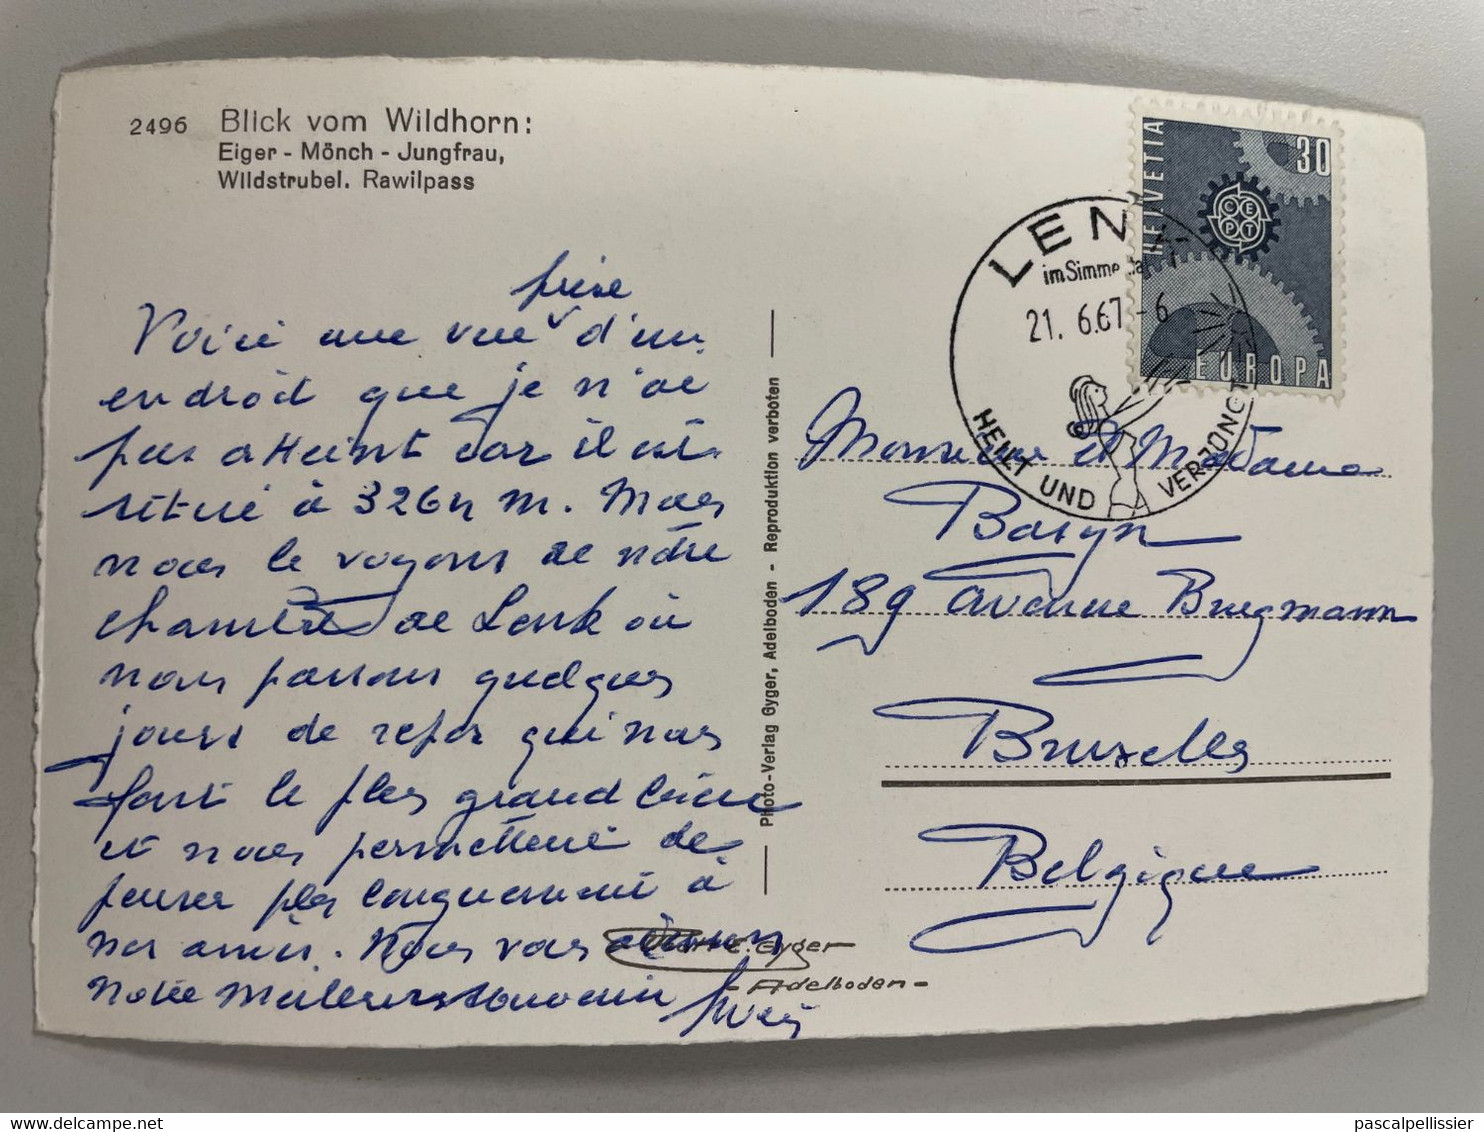 2496 Blick vom Wildhorn:
Eiger - Mönch - Jungfrau,
Wildstrubel. Rawilpass
prise
Voici une vue d'un
endroit que je n'ai
pas atteint car il est
situé à 3264 m. Mais
nous le voyons de notre
chambre de Lenk où
nous passons quelques
jours de repos qui nous
font le plus grand bien
et nous permettent de
penser plus longuement à
nos amis. Nous vous
notre meilleur souvenir
Photo-Verlag Gyger, Adelboden - Reproduktion verboten
E. Gyger
- Adelboden -
HELVETIA
30
CEPT
EUROPA
LENK
im Simmental
21. 6.67 - 6
HEILT UND VERJÜNGT
Monsieur et Madame
189 avenue Brugmann
Bruxelles
Belgique
pascalpellissier